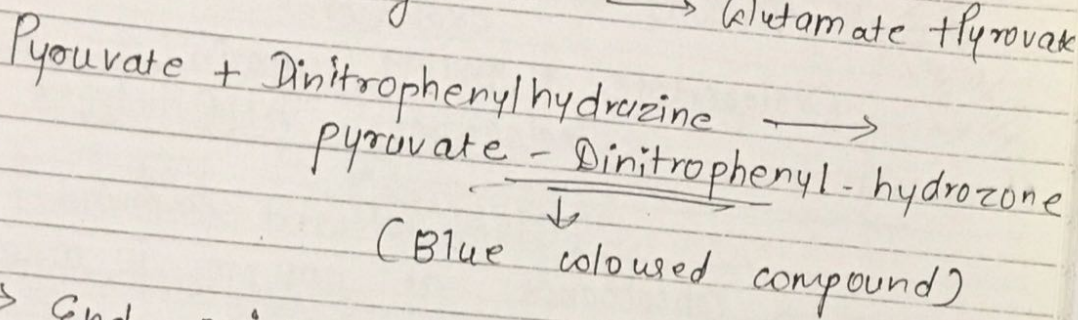 → Glutamate + Pyrovate
Pyouvate + Dinitrophenylhydrazine →
pyruvate - Dinitrophenyl - hydrozone
↓
(Blue coloured compound)
> End